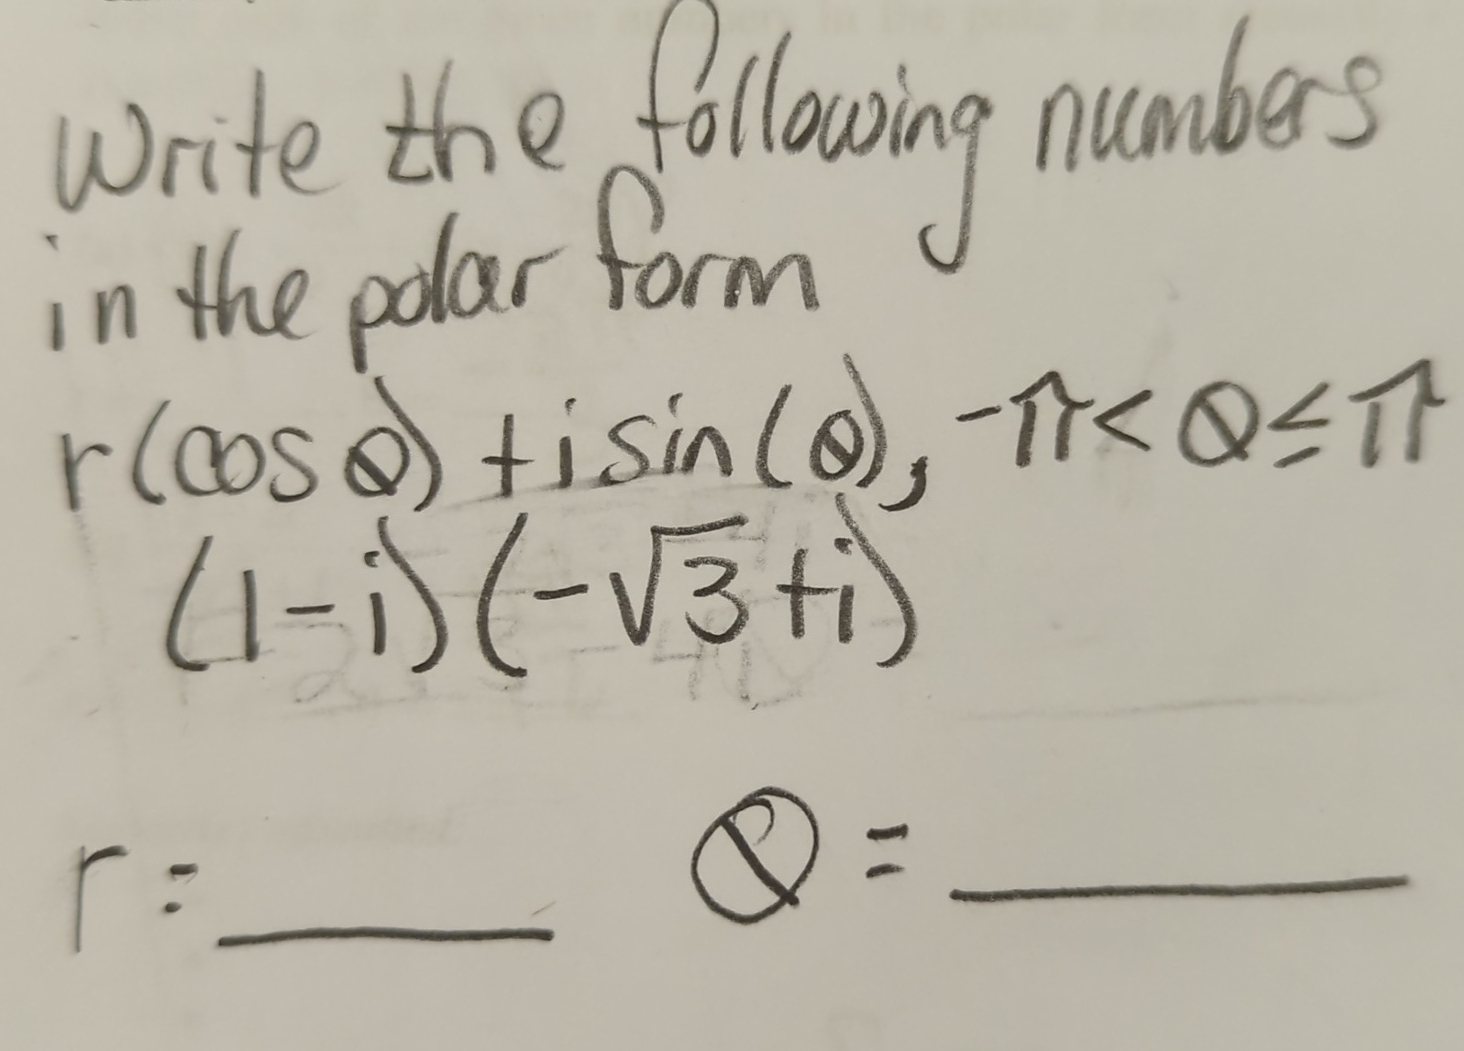 Write the following numbers
in the polar form
r(cos θ) + i sin(θ), -π < θ ≤ π
(1-i)(-√3+i)
r = ______ θ = ______